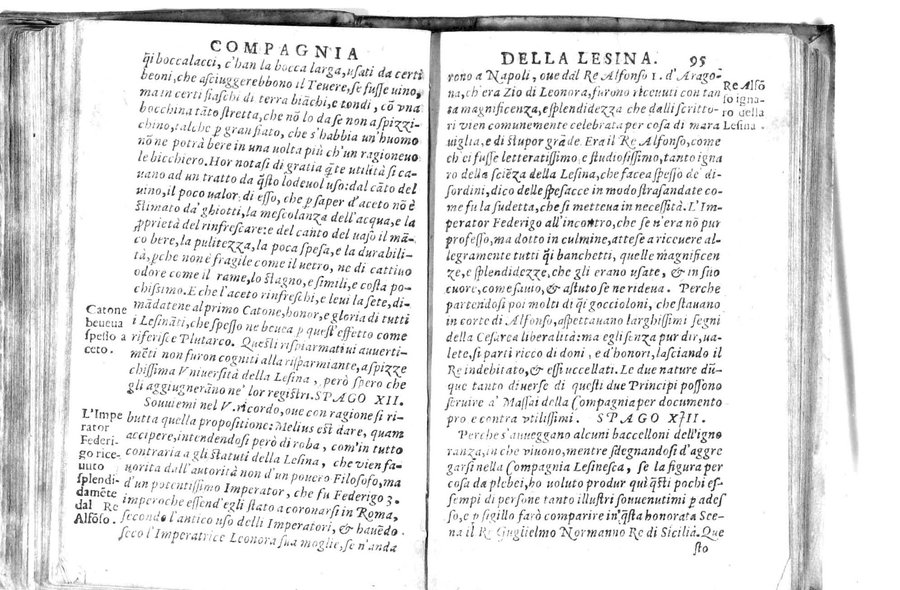 COMPAGNIA
q̃i boccalacci, c'han la bocca larga, usati da certi
beoni, che asciuggerebbono il Teuere, se fusse uino,
ma in certi fiaschi di terra biãchi, e tondi, cõ vna
bocchina tãto stretta, che nõ lo da se non a spizzi-
chino, talche p̱ gran fiato, che s'habbia un'huomo
nõ ne potrà bere in una uolta più ch'un ragioneuo
le bicchiero. Hor notasi di gratia q̃te utilità si ca-
uano ad un tratto da q̃sto lodeuol uso: dal cãto del
uino, il poco ualor di esso, che p̱ saper d'aceto nõ è
stimato da' ghiotti, la mescolanza dell'acqua, e la
p̱prietà del rinfrescare: e del canto del uaso il mã-
co bere, la pulitezza, la poca spesa, e la durabili-
tà, p̱che non è fragile come il uetro, ne di cattiuo
odore come il rame, lo stagno, e simili, e costa po-
chissimo. E che l'aceto rinfreschi, e leui la sete, di-
mãdatene al primo Catone, honor, e gloria di tutti
i Lesinãti, che spesso ne beuea p̱ quest'effetto come
riferisce Plutarco. Questi risparmatiui auuerti-
mẽti non furon cogniti alla risparmiante, aspizze
chissima Vniuersità della Lesina, però spero che
gli aggiugnerãno ne' lor registri. SPAGO XII.
Souuiemi nel V. ricordo, oue con ragione si ri-
butta quella propositione: Melius est dare, quam
accipere, intendendosi però di roba, com'in tutto
contraria a gli statuti della Lesina, che vien fa-
uorita dall'autorità non d'un pouero Filosofo, ma
d'un potentissimo Imperator, che fu Federigo 3.
imperoche essend'egli stato a coronarsi in Roma,
secondo l'antico uso delli Imperatori, & hauẽdo
seco l'Imperatrice Leonora sua moglie, se n'anda
Catone
beueua
spesso a
ceto.
L'Impe
rator
Federi-
go rice-
uuto
splendi-
damẽte
dal Re
Alfõso.
DELLA LESINA. 95
rono a Napoli, oue dal Re Alfonso 1. d'Arago-
na, ch'era Zio di Leonora, furono riceuuti con tan
ta magnificenza, e splendidezza che dalli scritto-
ri vien comunemente celebrata per cosa di mara
uiglia, e di stupor grãde. Era il Re Alfonso, come
ch'ei fusse letteratissimo, e studiosissimo, tanto igna
ro della sciẽza della Lesina, che facea spesso de' di-
sordini, dico delle spesacce in modo strasandate co-
me fu la sudetta, che si metteua in necessità. L'Im-
perator Federigo all'incontro, che se n'era nõ pur
professo, ma dotto in culmine, attese a riceuere al-
legramente tutti q̃i banchetti, quelle magnificen
ze, e splendidezze, che gli erano usate, & in suo
cuore, come sauio, & astuto se ne rideua. Perche
partendosi poi molti di q̃i goccioloni, che stauano
in corte di Alfonso, aspettauano larghissimi segni
della Cesarea liberalità: ma egli senza pur dir, ua-
lete, si partì ricco di doni, e d'honori, lasciando il
Re indebitato, & essi uccellati. Le due nature dũ-
que tanto diuerse di questi due Principi possono
seruire a' Massai della Compagnia per documento
pro e contra vtilissimi. SPAGO XIII.
Perche s'auueggano alcuni baccelloni dell'igno
ranza, in che viuono, mentre sdegnandosi d'aggre
garsi nella Compagnia Lesinesca, se la figura per
cosa da plebei, ho uoluto produr quì q̃sti pochi es-
sempi di persone tanto illustri souuenutimi p̱ ades
so, e p̱ sigillo farò comparire in q̃sta honorata Sce-
na il Re Guglielmo Normanno Re di Sicilia. Que
sto
Re Alfõ
so igna-
ro della
Lesina.